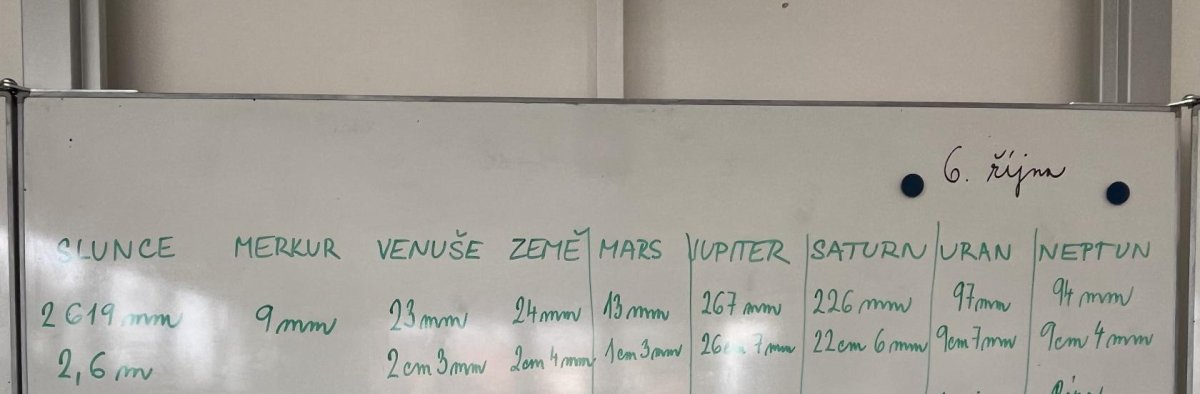 6. října
SLUNCE MERKUR VENUŠE ZEMĚ MARS JUPITER SATURN URAN NEPTUN
2 619 mm 9 mm 23 mm 24 mm 13 mm 267 mm 226 mm 97 mm 94 mm
2,6 m 2 cm 3 mm 2 cm 4 mm 1 cm 3 mm 26 cm 7 mm 22 cm 6 mm 9 cm 7 mm 9 cm 4 mm